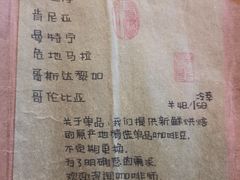 肯尼亚
曼特宁
危地马拉
哥斯达黎加
哥伦比亚
冷萃
￥48/58
关于单品，我们提供新鲜烘焙
的原产地精选单品咖啡豆。
不定期更换。
为了明确您的需求
欢迎咨询咖啡师